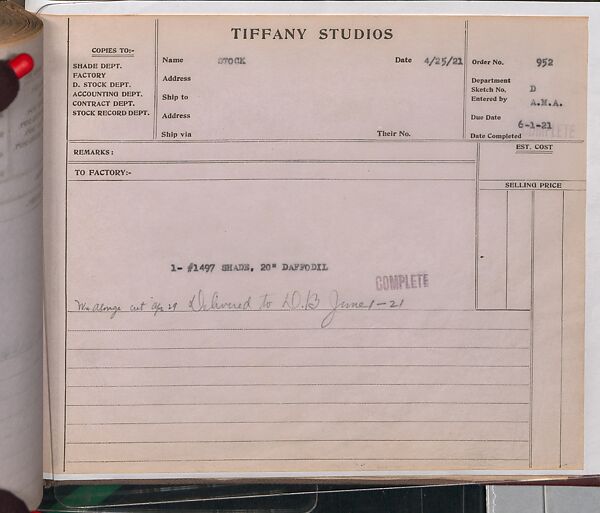 TIFFANY STUDIOS
COPIES TO:-
SHADE DEPT.
FACTORY
D. STOCK DEPT.
ACCOUNTING DEPT.
CONTRACT DEPT.
STOCK RECORD DEPT.
Name STOCK Date 4/25/21
Address
Ship to
Address
Ship via Their No.
Order No. 952
Department
Sketch No. D
Entered by A.M.A.
Due Date 6-1-21
Date Completed COMPLETE
REMARKS:
EST. COST
TO FACTORY:-
SELLING PRICE
1- #1497 SHADE, 20" DAFFODIL
COMPLETE
cut Apr 29 Delivered to D.B June 1-21